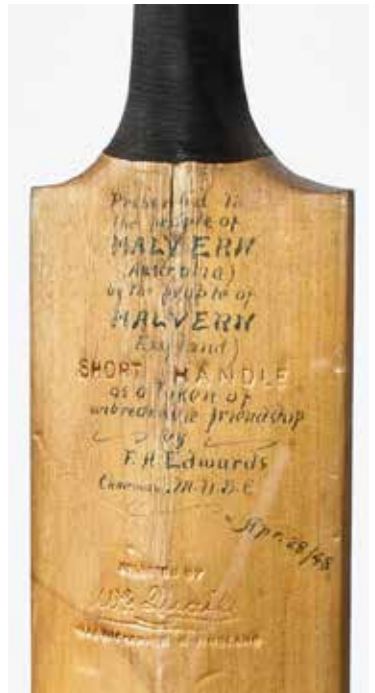 Presented to
the people of
MALVERN
(Australia)
by the people of
MALVERN
(England)
SHORT HANDLE
as a token of
unbreakable friendship
by
F. H. Edwards
Chairman, M.U.D.C
Apr. 28/48
SELECTED BY
ENGLAND